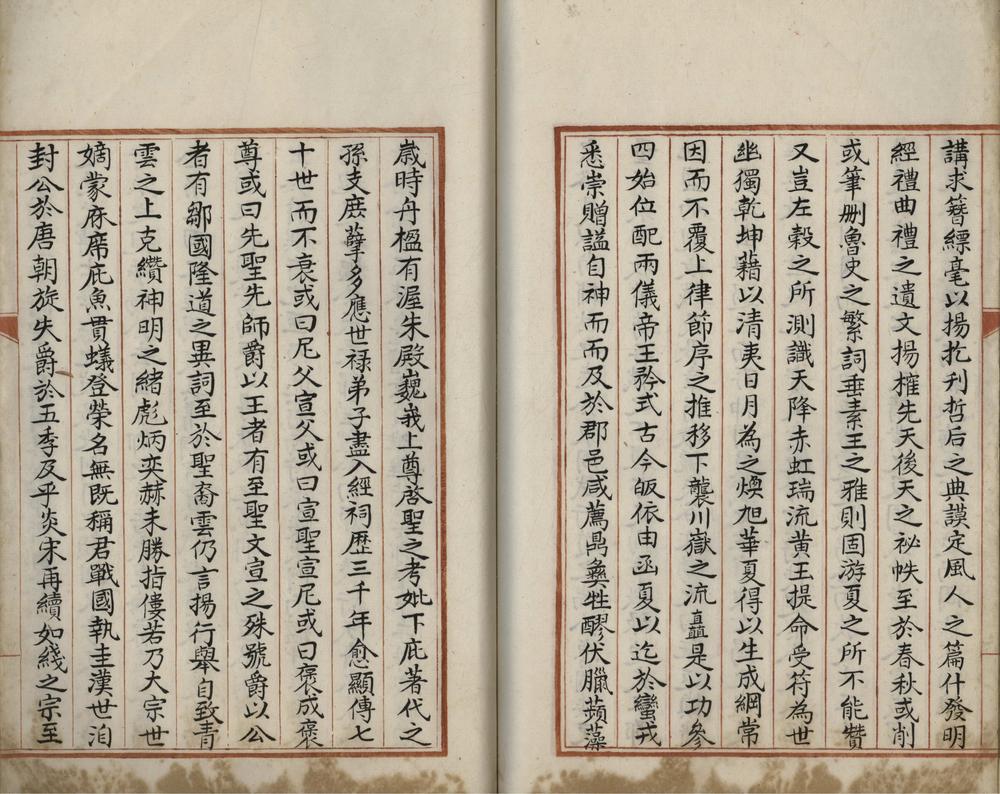 講求簪縹毫以揚扢刊哲后之典謨定風人之篇什發明
經禮曲禮之遺文揚搉先天後天之祕帙至於春秋或削
或筆刪魯史之繁詞垂素王之雅則固游夏之所不能贊
又豈左穀之所測識天降赤虹瑞流黃玉提命受符為世
幽獨乾坤藉以清夷日月為之煥旭華夏得以生成綱常
因而不覆上律節序之推移下襲川嶽之流矗是以功參
四始位配兩儀帝王矜式古今皈依由函夏以迄於蠻戎
悉崇贈謚自神而而及於郡邑咸薦鬺彝牲醪伏臘蘋藻
歲時丹楹有渥朱殿巍峩上尊啓聖之考妣下庇著代之
孫支庶孽多應世禄弟子盡入經祠歷三千年愈顯傳七
十世而不衰或曰尼父宣父或曰宣聖宣尼或曰褒成褒
尊或曰先聖先師爵以王者有至聖文宣之殊號爵以公
者有鄒國隆道之異詞至於聖裔雲仍言揚行舉自致青
雲之上克纘神明之緒彪炳奕赫未勝指僂若乃大宗世
嫡蒙庥席庇魚貫蟻登榮名無既稱君戰國執圭漢世洎
封公於唐朝旋失爵於五季及乎炎宋再續如綫之宗至